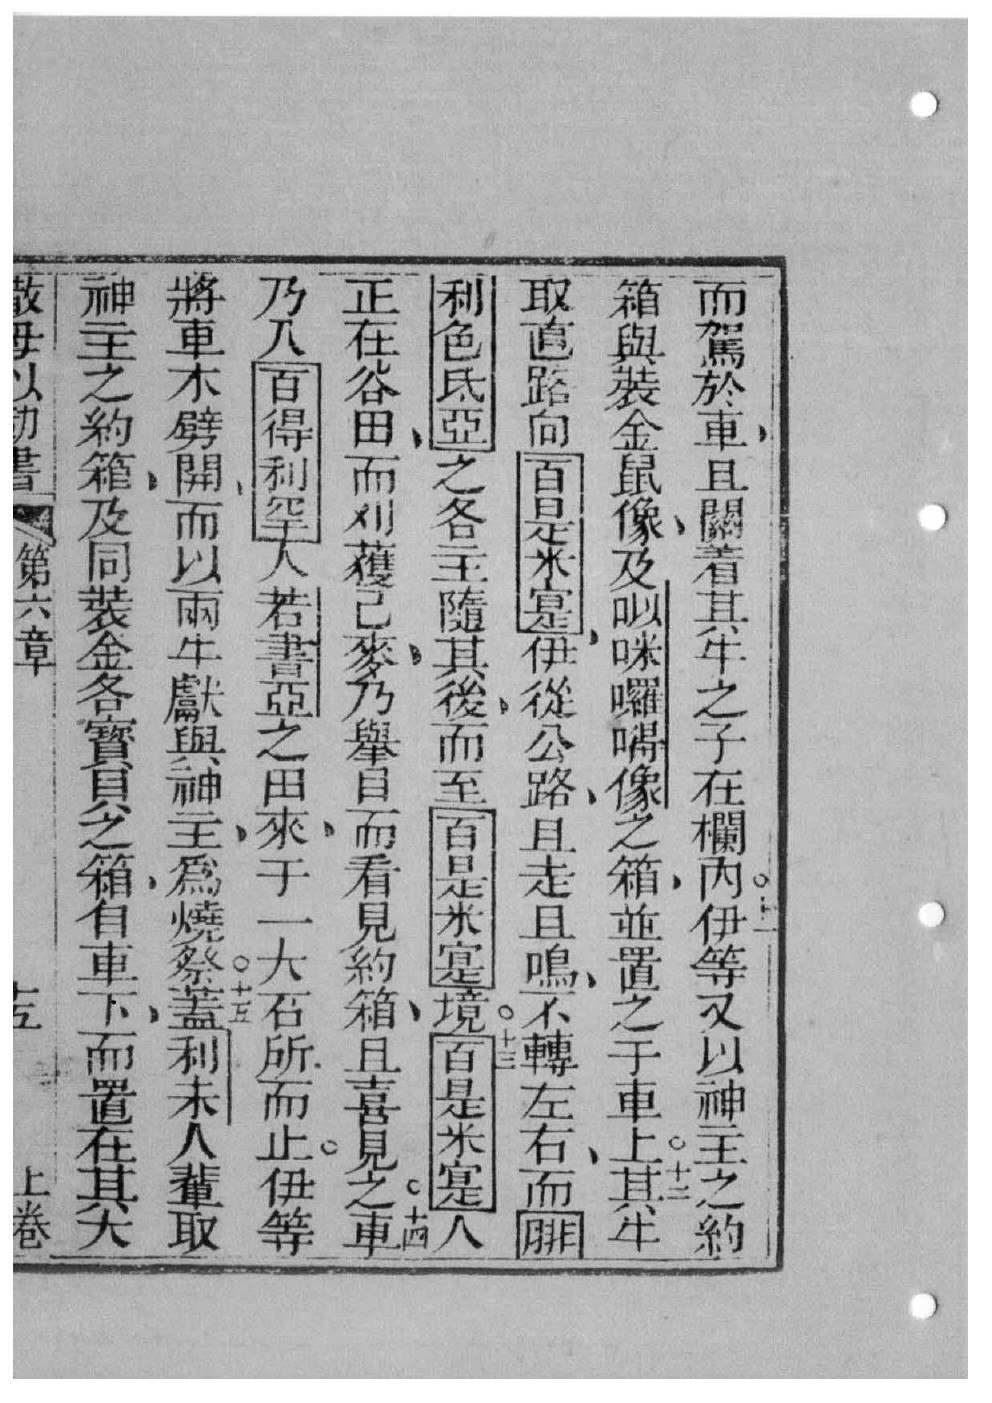 而駕於車且關着其牛之子在欄內十一伊等又以神主之約
箱與裝金鼠像及吆咪囉唈像之箱並置之于車上十二其牛
取直路向百是米寔伊從公路且走且鳴不轉左右而腓
利色氐亞之各主隨其後而至百是米寔境十三百是米寔人
正在谷田而刈穫己麥乃舉目而看見約箱且喜見之十四車
乃入百得利罕人若書亞之田來于一大石所而止伊等
將車木劈開而以兩牛獻與神主為燒祭十五蓋利未人輩取
神主之約箱及同裝金各寶貝之箱自車下而置在其大
撒母以勿書 第六章 十五 上卷